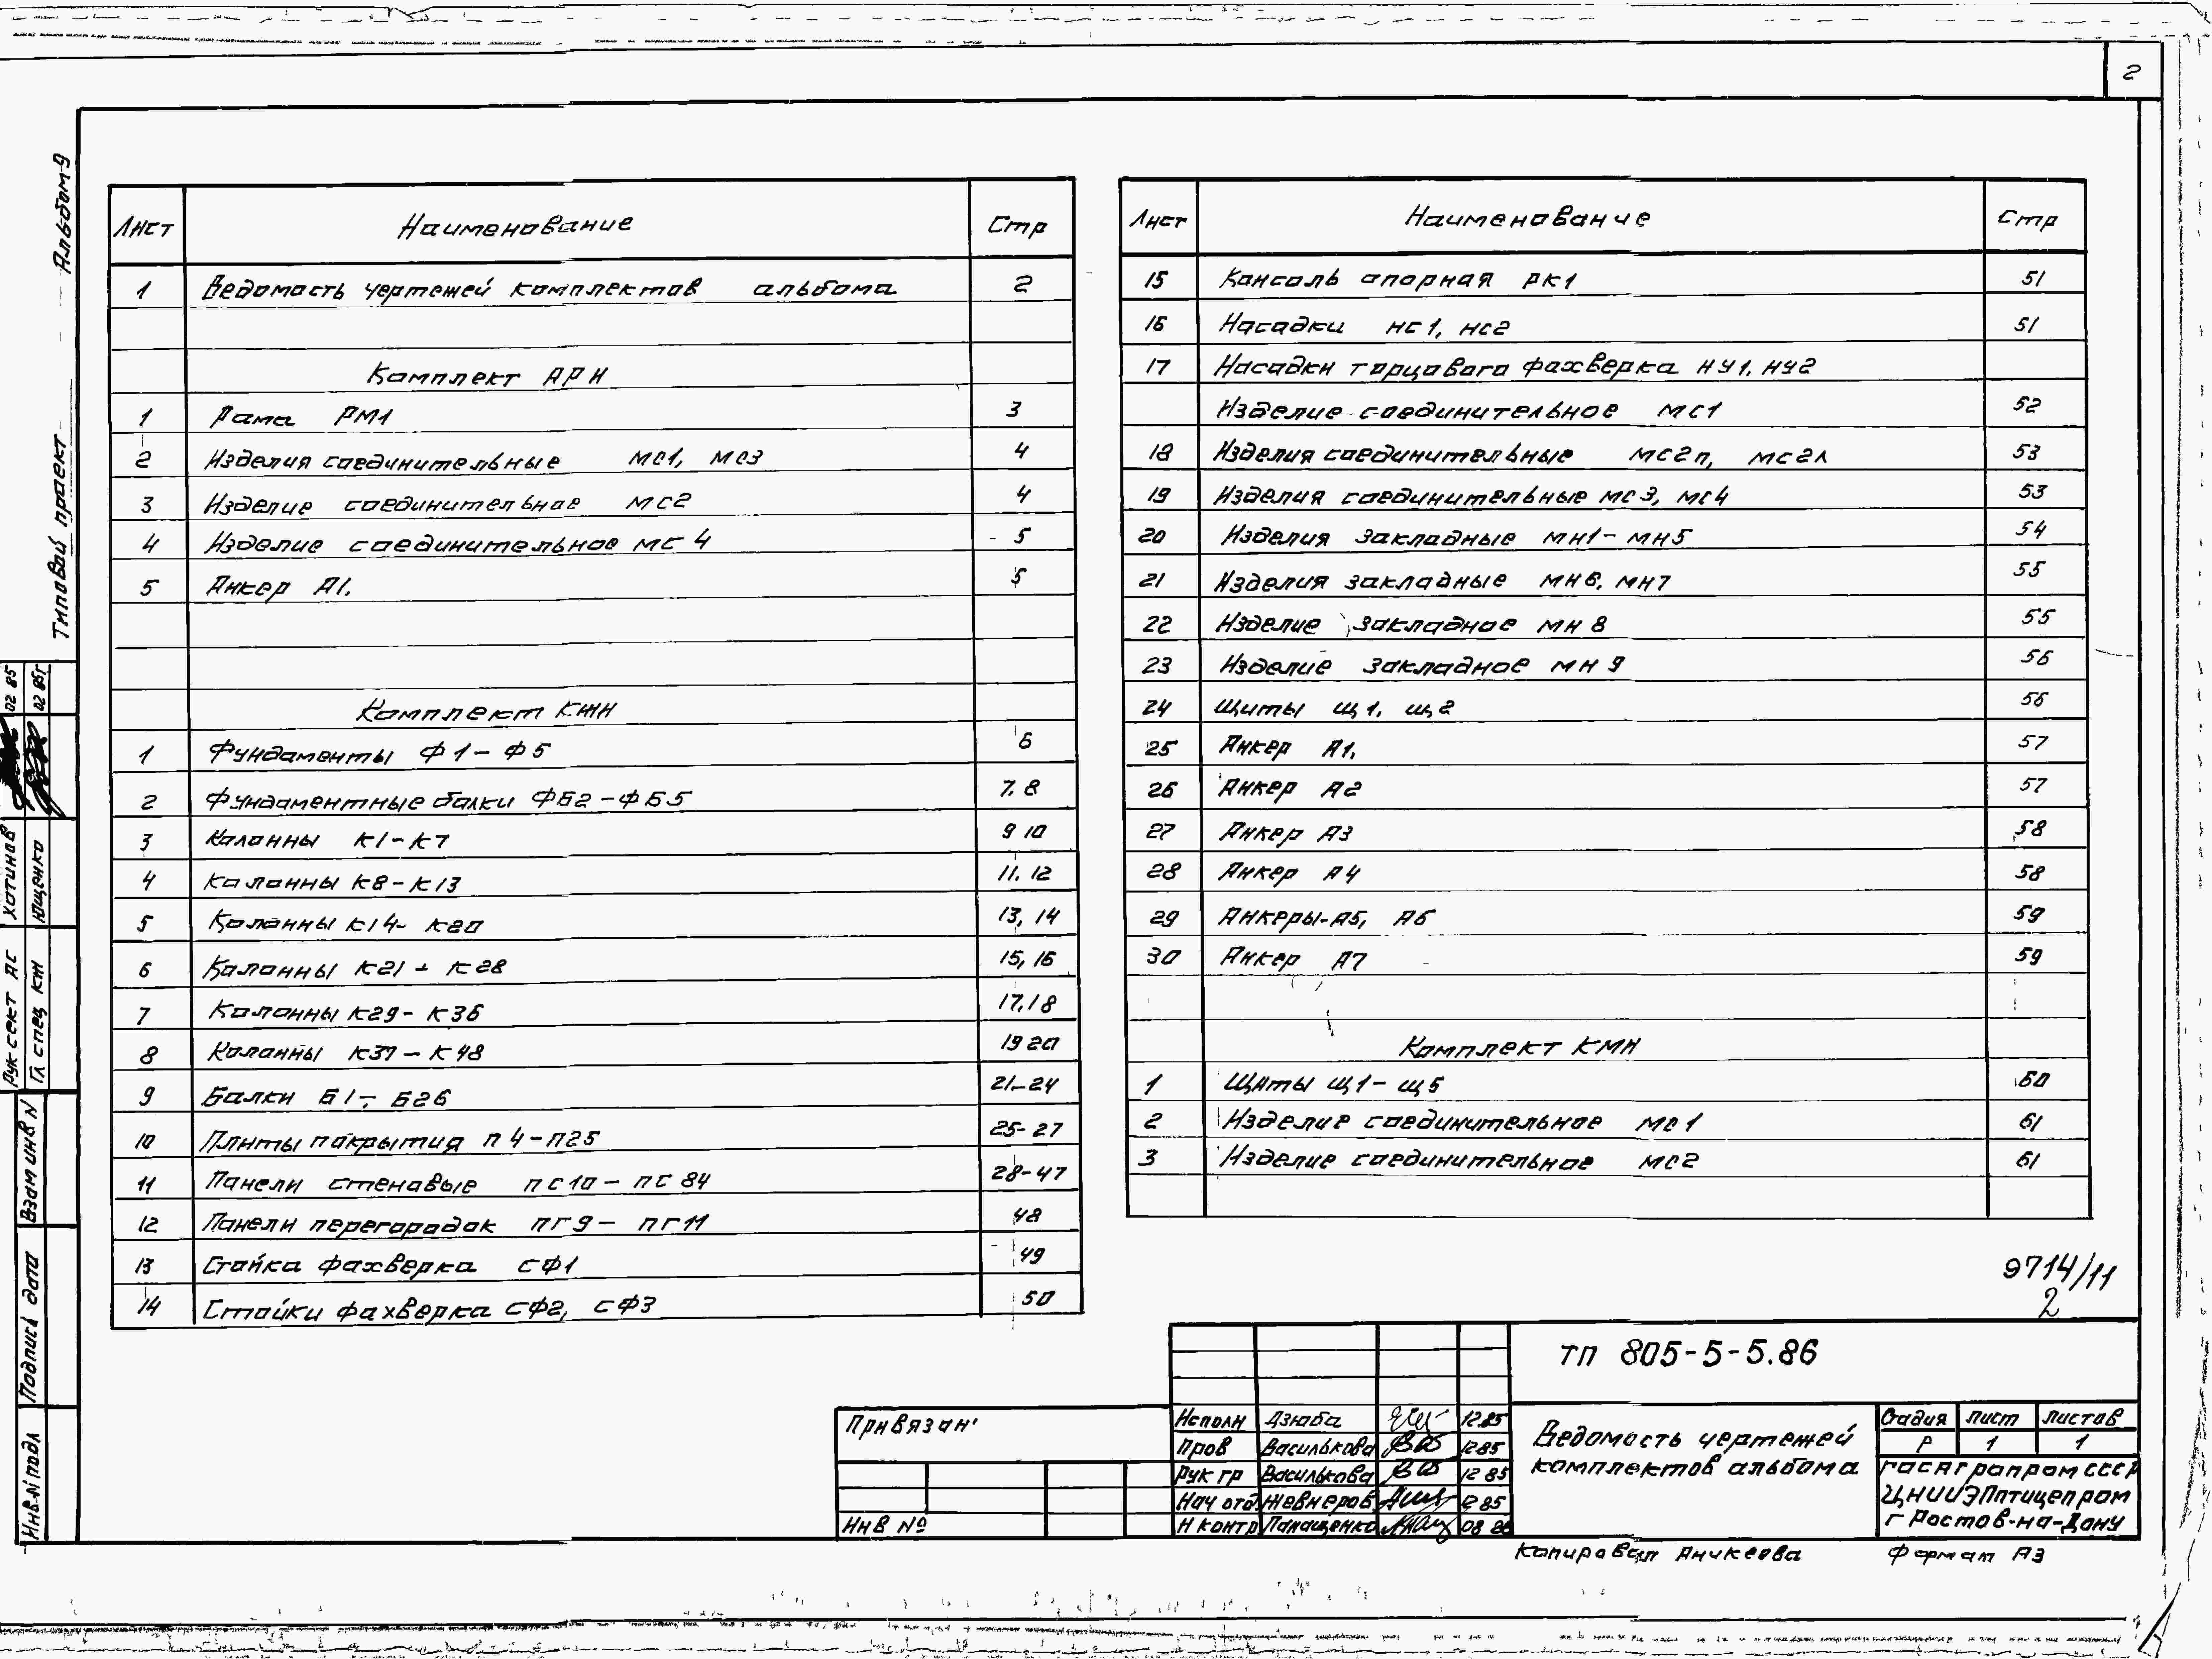 2
Типовой проект Альбом-9
Лист Наименование Стр
1 Ведомость чертежей комплектов альбома 2
Комплект АРИ
1 Рама РМ1 3
2 Изделия соединительные МС1, МС3 4
3 Изделие соединительное МС2 4
4 Изделие соединительное МС4 5
5 Анкер А1. 5
Комплект КЖИ
1 Фундаменты Ф1-Ф5 6
2 Фундаментные балки ФБ2-ФБ5 7, 8
3 Колонны К1-К7 9 10
4 Колонны К8-К13 11, 12
5 Колонны К14-К20 13, 14
6 Колонны К21-К28 15, 16
7 Колонны К29-К36 17, 18
8 Колонны К37-К48 19 20
9 Балки Б1-Б26 21-24
10 Плиты покрытия П4-П25 25-27
11 Панели стеновые ПС10-ПС84 28-47
12 Панели перегородок ПГ9-ПГ11 48
13 Стойка фахверка СФ1 49
14 Стойки фахверка СФ2, СФ3 50
Лист Наименование Стр
15 Консоль опорная РК1 51
16 Насадки НС1, НС2 51
17 Насадки торцового фахверка НУ1, НУ2
Изделие соединительное МС1 52
18 Изделия соединительные МС2п, МС2л 53
19 Изделия соединительные МС3, МС4 53
20 Изделия закладные МН1-МН5 54
21 Изделия закладные МН6, МН7 55
22 Изделие закладное МН8 55
23 Изделие закладное МН9 56
24 Щиты Щ1, Щ2 56
25 Анкер А1. 57
26 Анкер А2 57
27 Анкер А3 58
28 Анкер А4 58
29 Анкеры-А5, А6 59
30 Анкер А7 59
Комплект КМИ
1 Щиты Щ1-Щ5 60
2 Изделие соединительное МС1 61
3 Изделие соединительное МС2 61
9714/11
2
ТП 805-5-5.86
Привязан
Инв №
Исполн Дзюба 12 85
Пров Василькова 12 85
Рук гр Василькова 12 85
Нач отд Жевнеров 12 85
Н контр Панащенко 08 86
Ведомость чертежей
комплектов альбома
Стадия Лист Листов
Р 1 1
Госагропром СССР
ЦНИИЭПптицепром
г Ростов-на-Дону
Копировал Аникеева Формат А3
Рук сект АС Хотинов 02 85
Гл спец КЖ Ющенко 02 85
Взам инв N
Подпись дата
Инв N подл